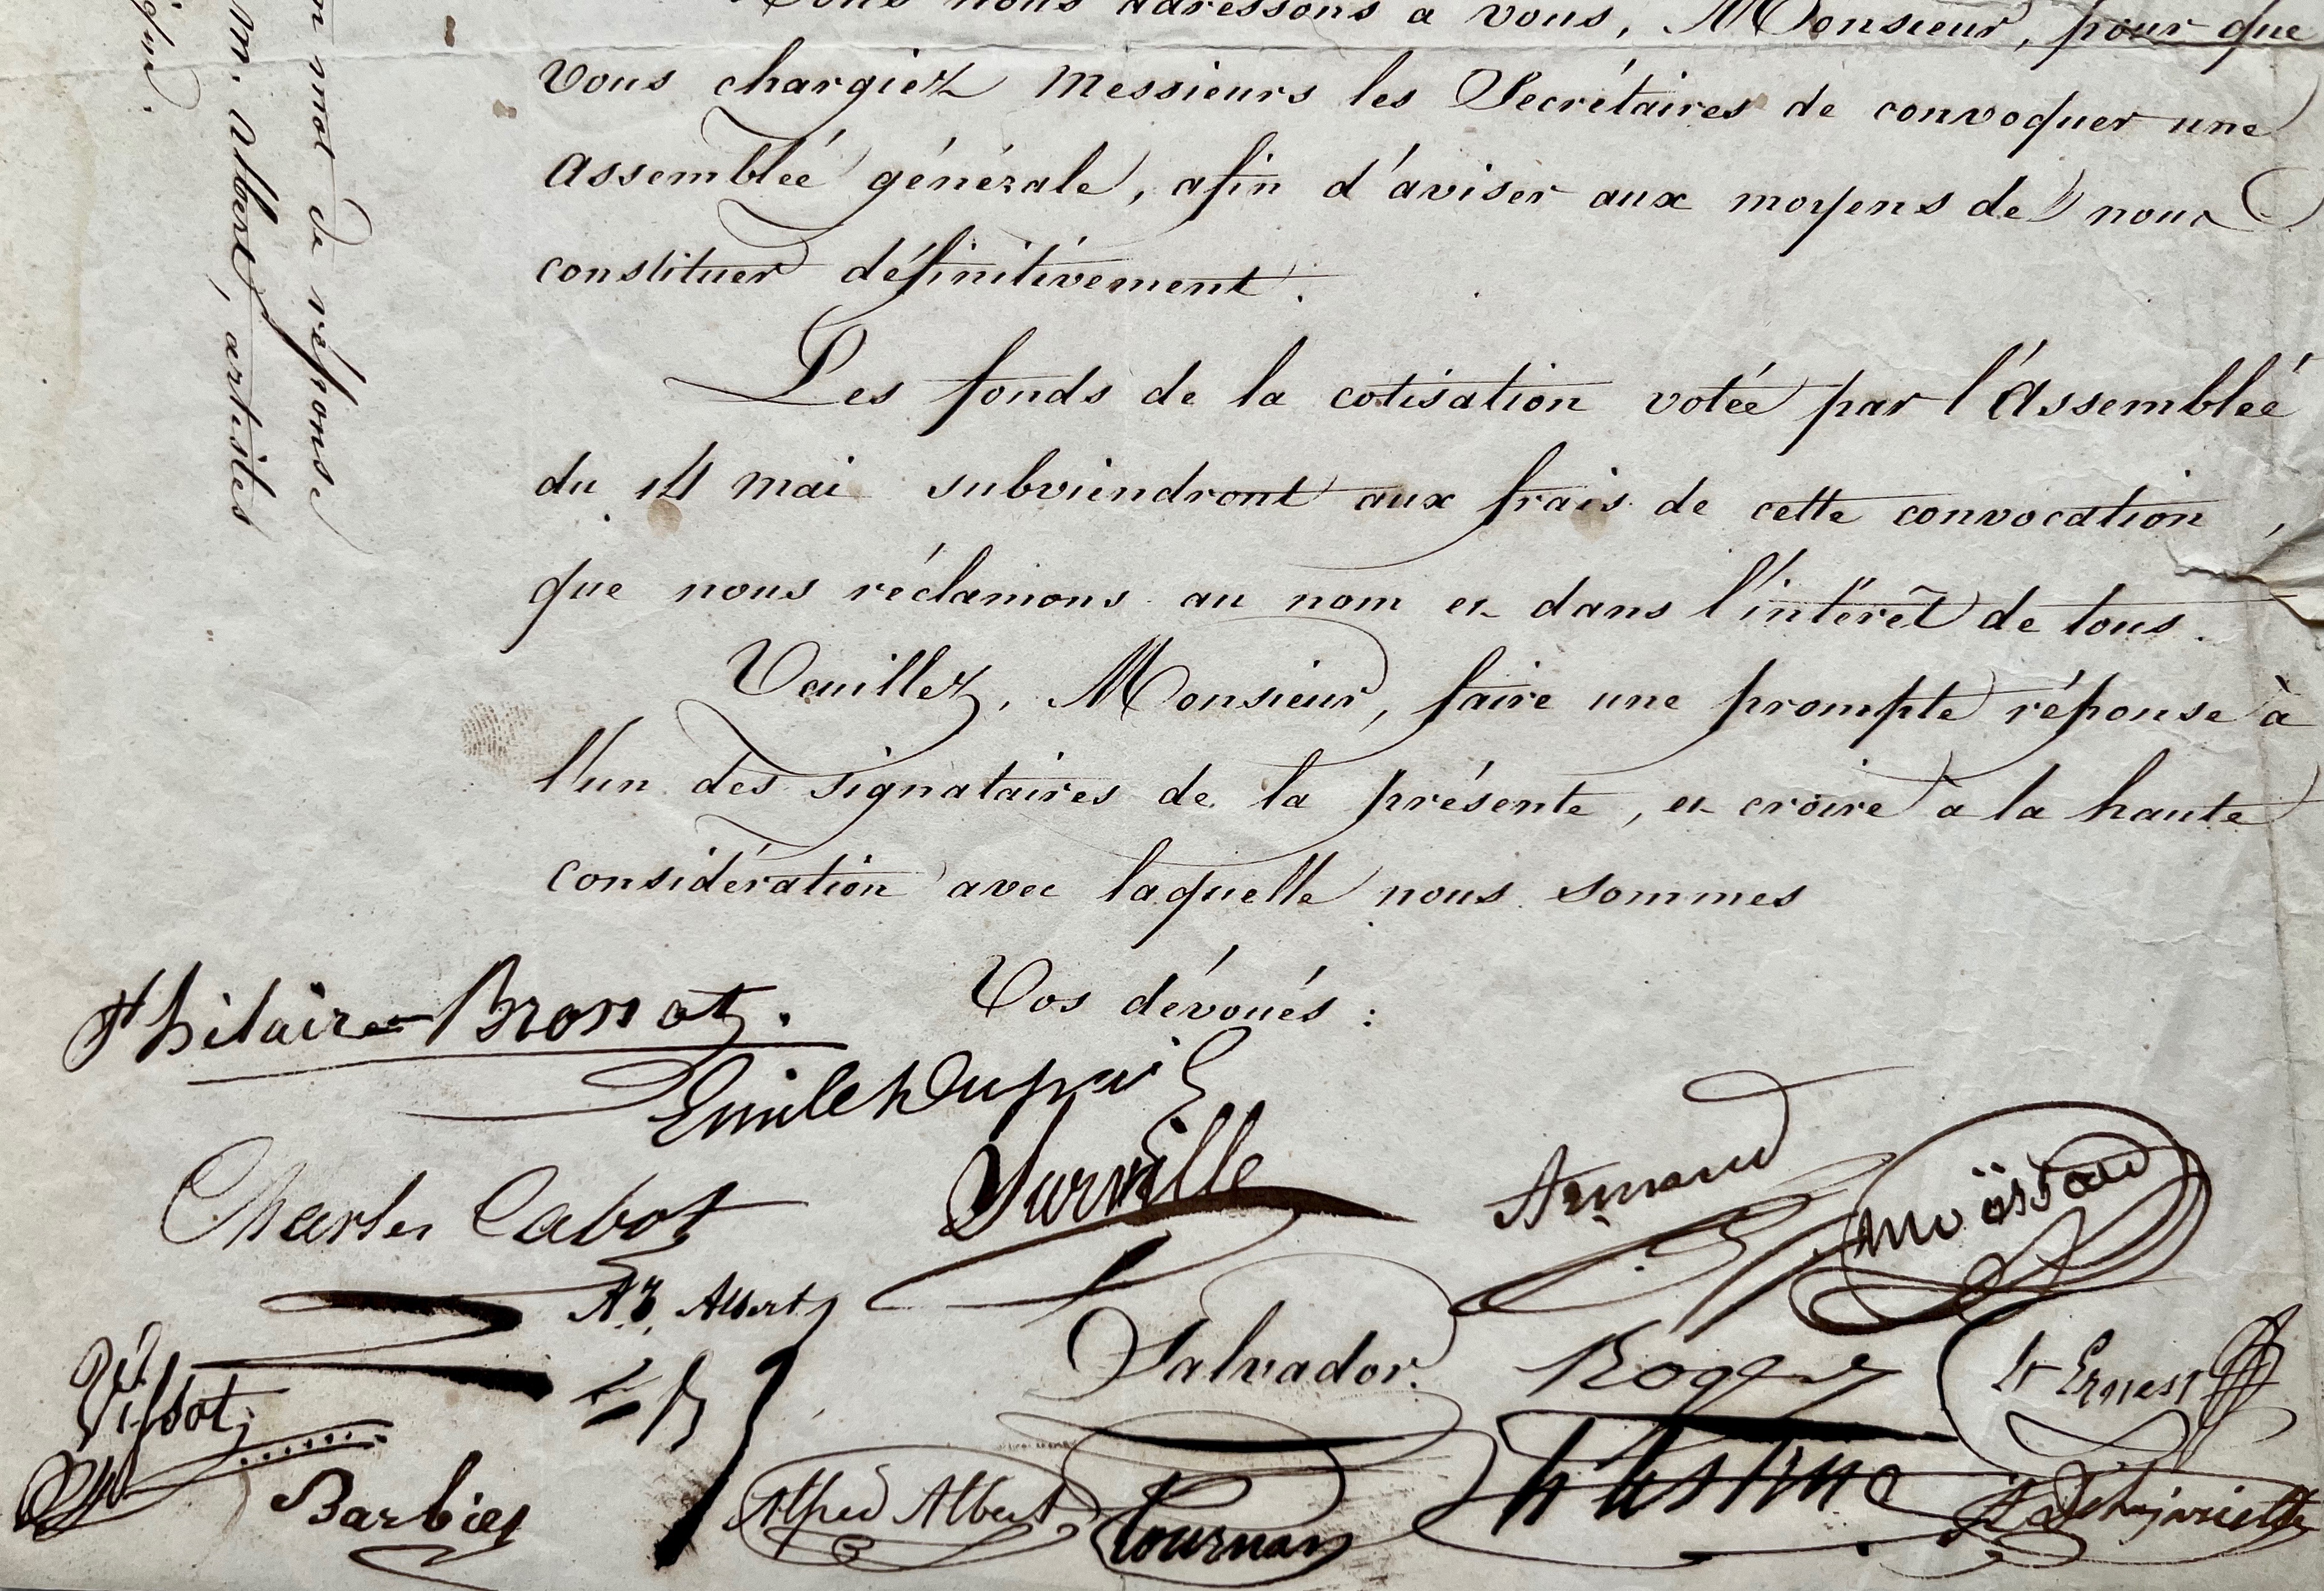 nous adressons à vous, Monsieur, pour que
vous chargiez Messieurs les Secrétaires de convoquer une
assemblée générale, afin d'aviser aux moyens de nous
constituer définitivement.
Les fonds de la cotisation votée par l'Assemblée
du 14 mai subviendront aux frais de cette convocation,
que nous réclamons au nom et dans l'intérêt de tous.
Veuillez, Monsieur, faire une prompte réponse à
l'un des signataires de la présente, et croire à la haute
considération avec laquelle nous sommes
Vos dévoués :
mot de réponse
m. Albert, artistes
St hilaire
Emile Dupuis
Charles Cabot
Surville
Armand
Moëssard
Az. Albert
Salvador.
Roger
St Ernest
Barbier
Alfred Albert
Tournan